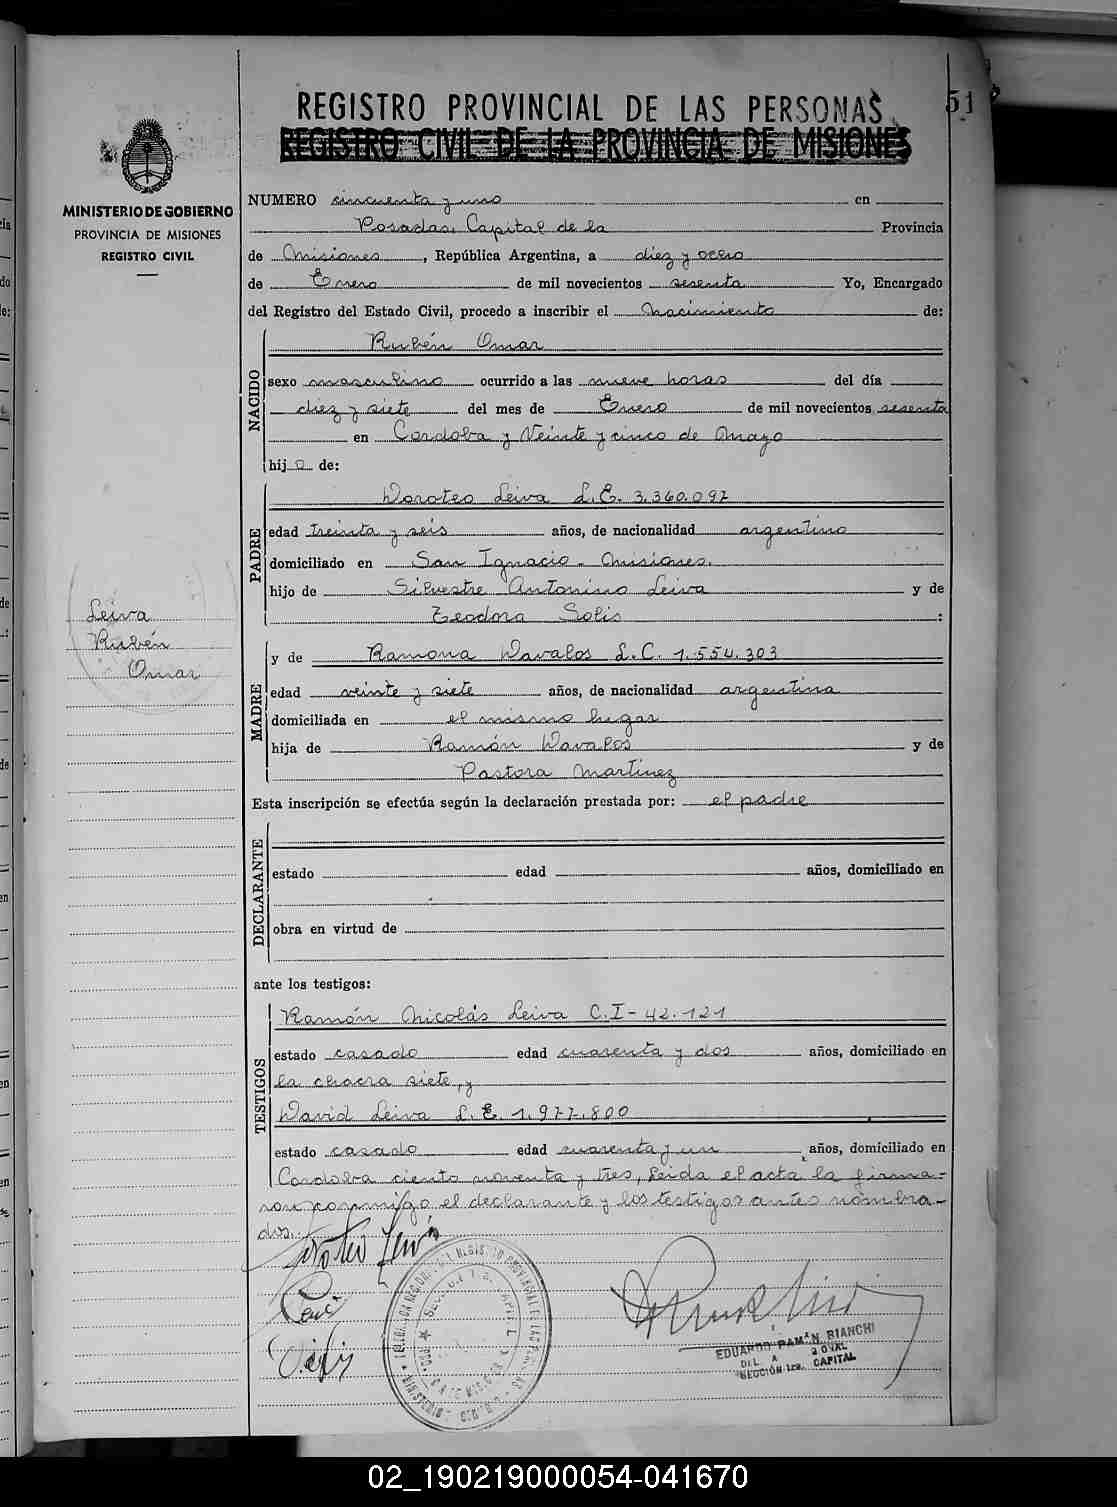 REGISTRO PROVINCIAL DE LAS PERSONAS
51
REGISTRO CIVIL DE LA PROVINCIA DE MISIONES
MINISTERIO DE GOBIERNO
PROVINCIA DE MISIONES
REGISTRO CIVIL
NUMERO cincuenta y uno en
Posadas, Capital de la Provincia
de Misiones, República Argentina, a diez y ocho
de Enero de mil novecientos sesenta Yo, Encargado
del Registro del Estado Civil, procedo a inscribir el Nacimiento de:
NACIDO
Rubén Omar
sexo masculino ocurrido a las nueve horas del día
diez y siete del mes de Enero de mil novecientos sesenta
en Cordoba y Veinte y cinco de Mayo
hijo de:
PADRE
Doroteo Leiva L.E. 3.360.097
edad treinta y seis años, de nacionalidad argentino
domiciliado en San Ignacio - Misiones.
hijo de Silvestre Antonino Leiva y de
Teodora Solis :
Leiva
Rubén
Omar
MADRE
y de Ramona Davalos L.C. 1.554.303
edad veinte y siete años, de nacionalidad argentina
domiciliada en el mismo lugar
hija de Ramón Davalos y de
Pastora Martinez
Esta inscripción se efectúa según la declaración prestada por: el padre
DECLARANTE
estado edad años, domiciliado en
obra en virtud de
ante los testigos:
TESTIGOS
Ramón Nicolás Leiva C.I - 42.121
estado casado edad cuarenta y dos años, domiciliado en
la chacra siete, y
David Leiva L.E. 1.977.800
estado casado edad cuarenta y un años, domiciliado en
Cordoba ciento noventa y tres, Leida el acta la firma-
ron conmigo el declarante y los testigos antes nombra-
dos.
EDUARDO RAMÓN BIANCHI
SECCIÓN 1ra. CAPITAL
02_190219000054-041670